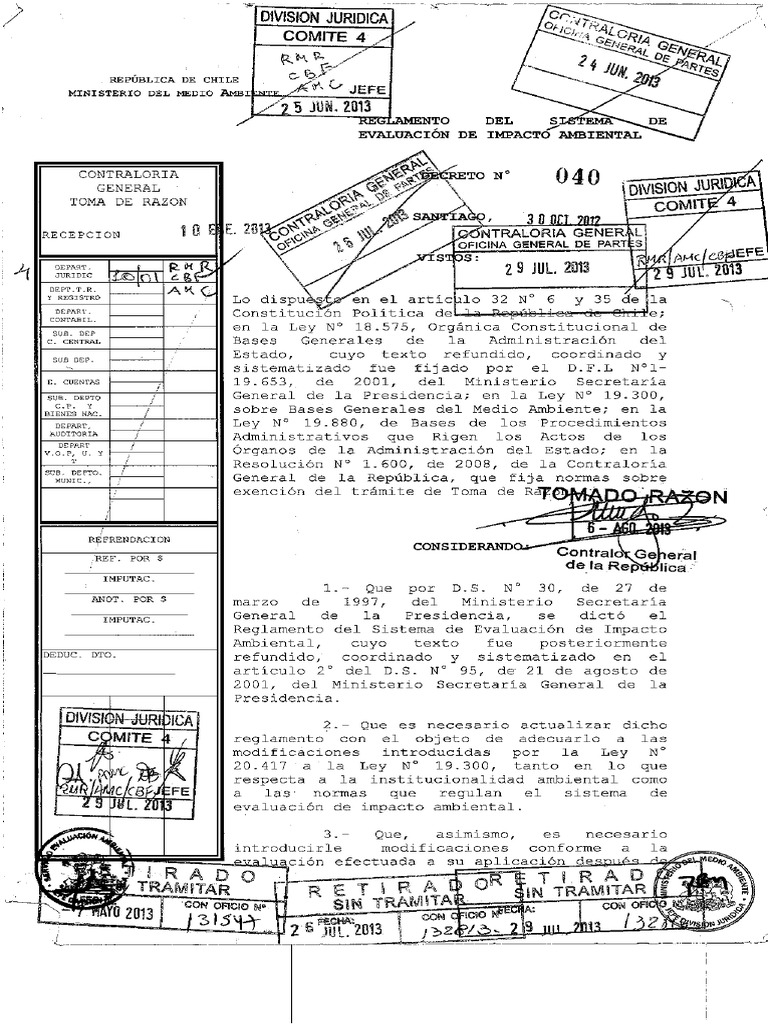 DIVISION JURIDICA
COMITE 4
RMR
CBF
AMC JEFE
25 JUN. 2013
CONTRALORIA GENERAL
OFICINA GENERAL DE PARTES
24 JUN. 2013
REPÚBLICA DE CHILE
MINISTERIO DEL MEDIO AMBIENTE
REGLAMENTO DEL SISTEMA DE
EVALUACIÓN DE IMPACTO AMBIENTAL
CONTRALORIA
GENERAL
TOMA DE RAZON
RECEPCION
10 ENE. 2013
DEPART.
JURIDIC
10/01
RMR
CBF
AMC
DEPT.T.R.
Y REGISTRO
DEPART.
CONTABIL.
SUB. DEP
C. CENTRAL
SUB DEP.
E. CUENTAS
SUB. DEPTO
C.P. Y
BIENES NAC.
DEPART.
AUDITORIA
DEPART
V.O.P, U. Y
T
SUB. DEPTO.
MUNIC.,
REFRENDACION
REF. POR $
IMPUTAC.
ANOT. POR $
IMPUTAC.
DEDUC. DTO.
DIVISION JURIDICA
COMITE 4
RMR/AMC/CBF JEFE
29 JUL. 2013
CONTRALORIA GENERAL
OFICINA GENERAL DE PARTES
26 JUL. 2013
DECRETO N° 040
SANTIAGO, 30 OCT. 2012
DIVISION JURIDICA
COMITE 4
RMR/AMC/CBF JEFE
29 JUL. 2013
CONTRALORIA GENERAL
OFICINA GENERAL DE PARTES
29 JUL. 2013
VISTOS:
Lo dispuesto en el artículo 32 N° 6 y 35 de la
Constitución Política de la República de Chile;
en la Ley N° 18.575, Orgánica Constitucional de
Bases Generales de la Administración del
Estado, cuyo texto refundido, coordinado y
sistematizado fue fijado por el D.F.L N°1-
19.653, de 2001, del Ministerio Secretaría
General de la Presidencia; en la Ley N° 19.300,
sobre Bases Generales del Medio Ambiente; en la
Ley N° 19.880, de Bases de los Procedimientos
Administrativos que Rigen los Actos de los
Órganos de la Administración del Estado; en la
Resolución N° 1.600, de 2008, de la Contraloría
General de la República, que fija normas sobre
exención del trámite de Toma de
TOMADO RAZON
6 - AGO. 2013
Contralor General
de la República
CONSIDERANDO:
1.- Que por D.S. N° 30, de 27 de
marzo de 1997, del Ministerio Secretaría
General de la Presidencia, se dictó el
Reglamento del Sistema de Evaluación de Impacto
Ambiental, cuyo texto fue posteriormente
refundido, coordinado y sistematizado en el
artículo 2° del D.S. N° 95, de 21 de agosto de
2001, del Ministerio Secretaría General de la
Presidencia.
2.- Que es necesario actualizar dicho
reglamento con el objeto de adecuarlo a las
modificaciones introducidas por la Ley N°
20.417 a la Ley N° 19.300, tanto en lo que
respecta a la institucionalidad ambiental como
a las normas que regulan el sistema de
evaluación de impacto ambiental.
3.- Que, asimismo, es necesario
introducirle modificaciones conforme a la
evaluación efectuada a su aplicación después de
TIRADO
TRAMITAR
MAYO 2013
CON OFICIO N°
RETIRADO
SIN TRAMITAR
FECHA:
26 JUL. 2013
CON OFICIO N°
RETIRAD
SIN TRAMITAR
FECHA:
29 JUL. 2013
CON OFICIO
MINISTERIO DEL MEDIO AMBIENTE
DIVISION JURIDICA